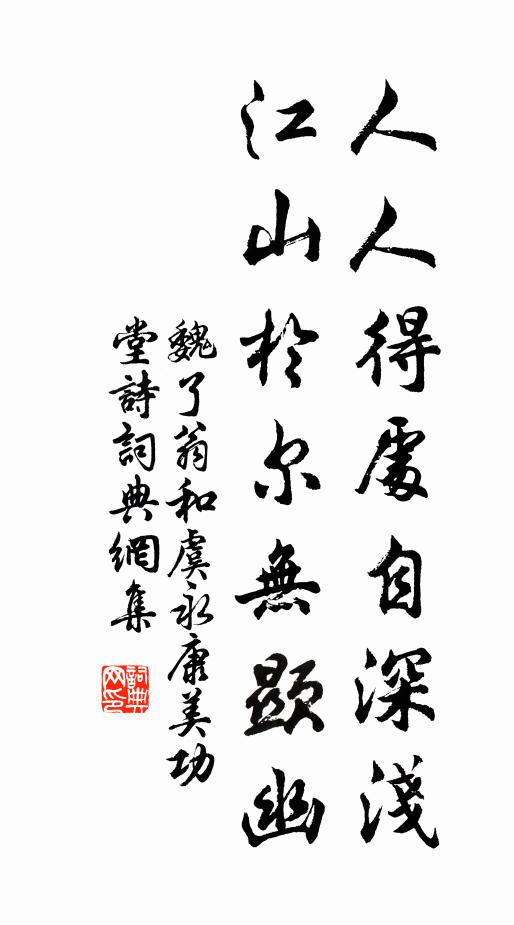 人人得處自深淺
江山於尔無顯幽
魏了翁和虞永康美功
堂詩詞典網集
詞典網印